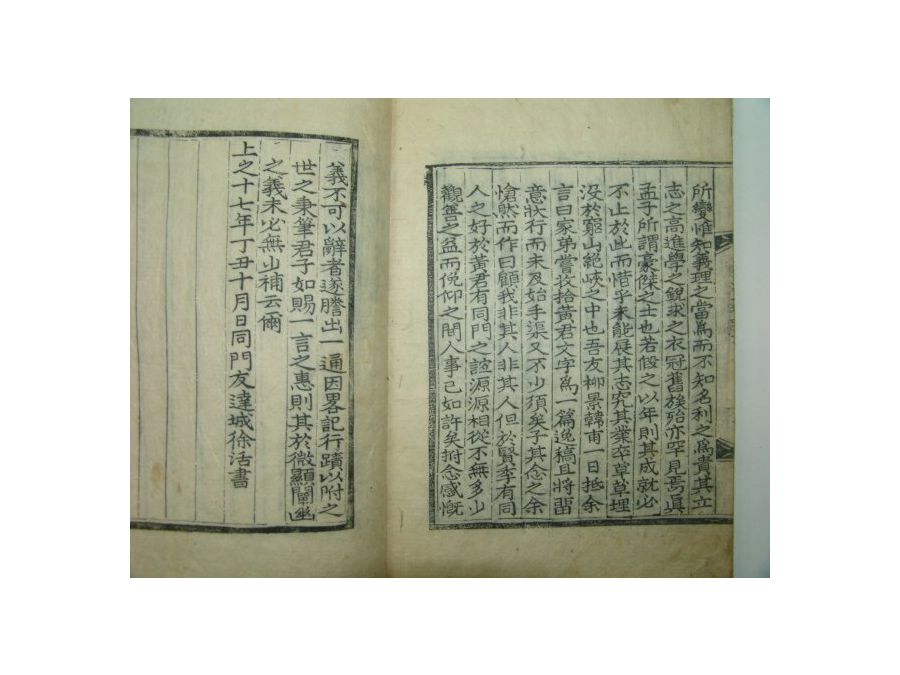 所變惟知義理之當爲而不知名利之爲貴其立
志之高進學之銳求之衣冠舊族殆亦罕見焉眞
孟子所謂豪傑之士也若假之以年則其成就必
不止於此而惜乎未能展其志究其業卒草草埋
沒於窮山絕峽之中也吾友柳景韓甫一日抵余
言曰家弟嘗收拾黃君文字爲一篇逸稿且將留
意狀行而未及始手渠又不少須矣子其念之余
愴然而作曰顧我非其人非其人但於賢季有同
人之好於黃君有同門之誼源源相從不無多少
觀善之益而俛仰之間人事已如許矣拊念感慨
義不可以辭者遂謄出一通因畧記行蹟以附之
世之秉筆君子如賜一言之惠則其於微顯闡幽
之義未必無少補云爾
上之十七年丁丑十月日同門友達城徐活書